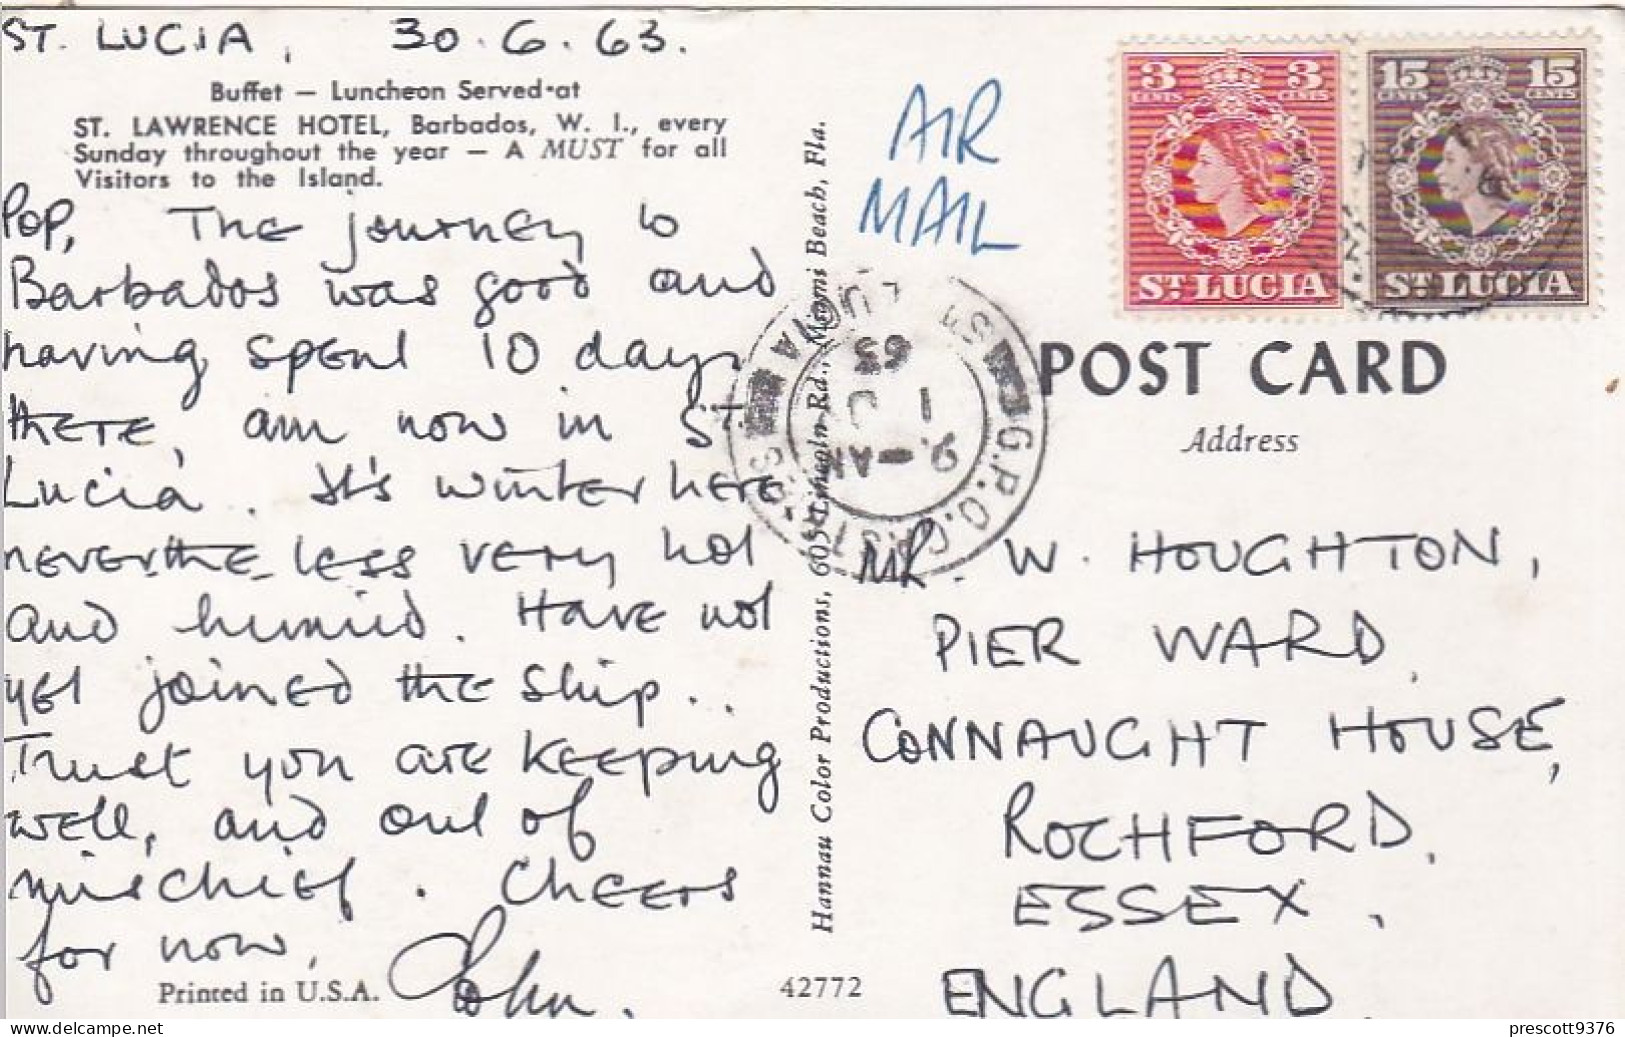 ST. LUCIA, 30.6.63.
Buffet — Luncheon Served at
ST. LAWRENCE HOTEL, Barbados, W. I., every
Sunday throughout the year — A MUST for all
Visitors to the Island.
Pop, The journey to
Barbados was good and
having spent 10 days
there, am now in St.
Lucia. It's winter here
never-the-less very hot
and humid. Have not
yet joined the ship..
Trust you are keeping
well, and out of
mischief. Cheers
for now,
John.
Printed in U.S.A.
Hannau Color Productions, 605 Lincoln Rd., Miami Beach, Fla.
42772
AIR
MAIL
3 CENTS 3 CENTS
ST LUCIA
15 CENTS 15 CENTS
ST LUCIA
G.P.O. CASTRIES ST LUCIA
9-AM
1 JU
63
POST CARD
Address
MR. W. HOUGHTON,
PIER WARD,
CONNAUGHT HOUSE,
ROCHFORD,
ESSEX,
ENGLAND.
www.delcampe.net
prescott9376